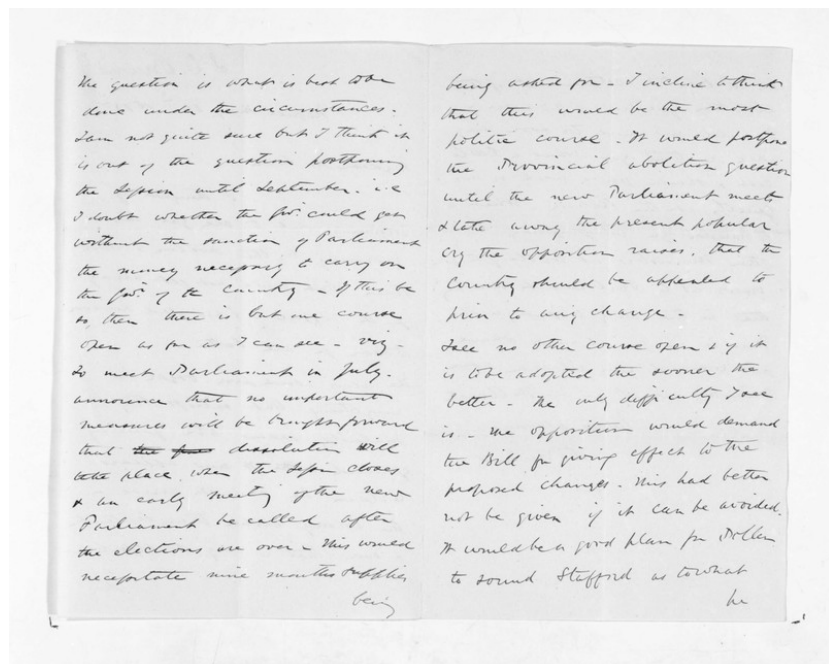 the question is what is best to be
done under the circumstances.
I am not quite sure but I think it
is out of the question postponing
the Session until September. i.e
I doubt whether the Govt. could get
without the sanction of Parliament
the money necessary to carry on
the Govt. of the Country – If this be
so, then there is but one course
open as far as I can see – viz –
to meet Parliament in July.
announce that no important
measures will be brought forward
that the dissolution will
take place when the Session closes
& an early meeting of the new
Parliament be called after
the elections are over – This would
necessitate nine months supplies
being
being asked for – I incline to think
that this would be the most
politic course. It would postpone
the Provincial abolition question
until the new Parliament meets
& take away the present popular
cry the opposition raises, that the
Country should be appealed to
prior to any change –
I see no other course open & if it
is to be adopted the sooner the
better – The only difficulty I see
is – the opposition would demand
the Bill for giving effect to the
proposed changes. This had better
not be given if it can be avoided.
It would be a good plan for Pollen
to sound Stafford as to what
he